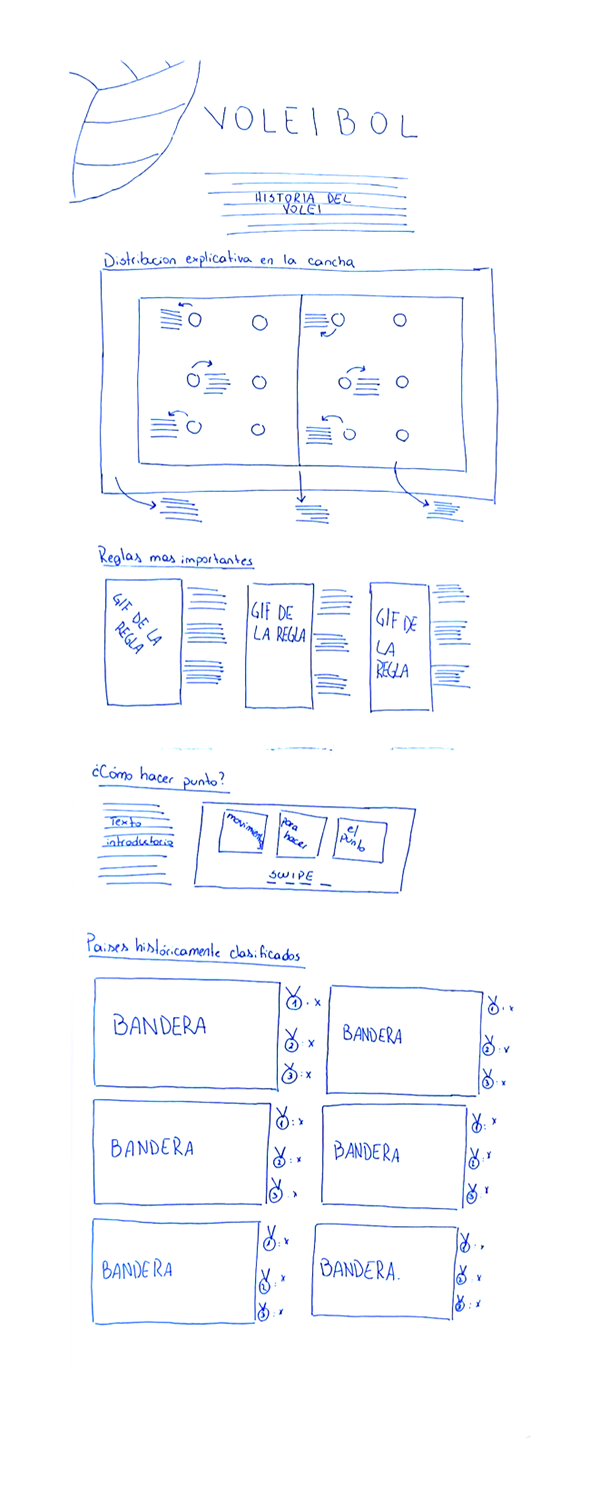 VOLEIBOL
HISTORIA DEL
VOLEI
Distribucion explicativa en la cancha
Reglas mas importantes
GIF DE LA
REGLA
GIF DE
LA REGLA
GIF DE
LA
REGLA
¿Cómo hacer punto?
Texto
introductorio
movimiento
para
hacer
el
punto
SWIPE
Paises históricamente clasificados
BANDERA
1 . x
2 . x
3 : x
BANDERA
1 . x
2 . x
3 . x
BANDERA
1 : x
2 : x
3 . x
BANDERA
1 . x
2 . x
3 . x
BANDERA
1 : x
2 : x
3 : x
BANDERA.
1 . x
2 : x
3 : x